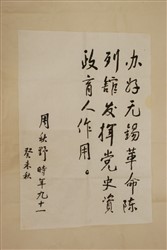 办好无锡革命陈
列馆发挥党史资
政育人作用。
周秋野 時年九十一
癸未秋